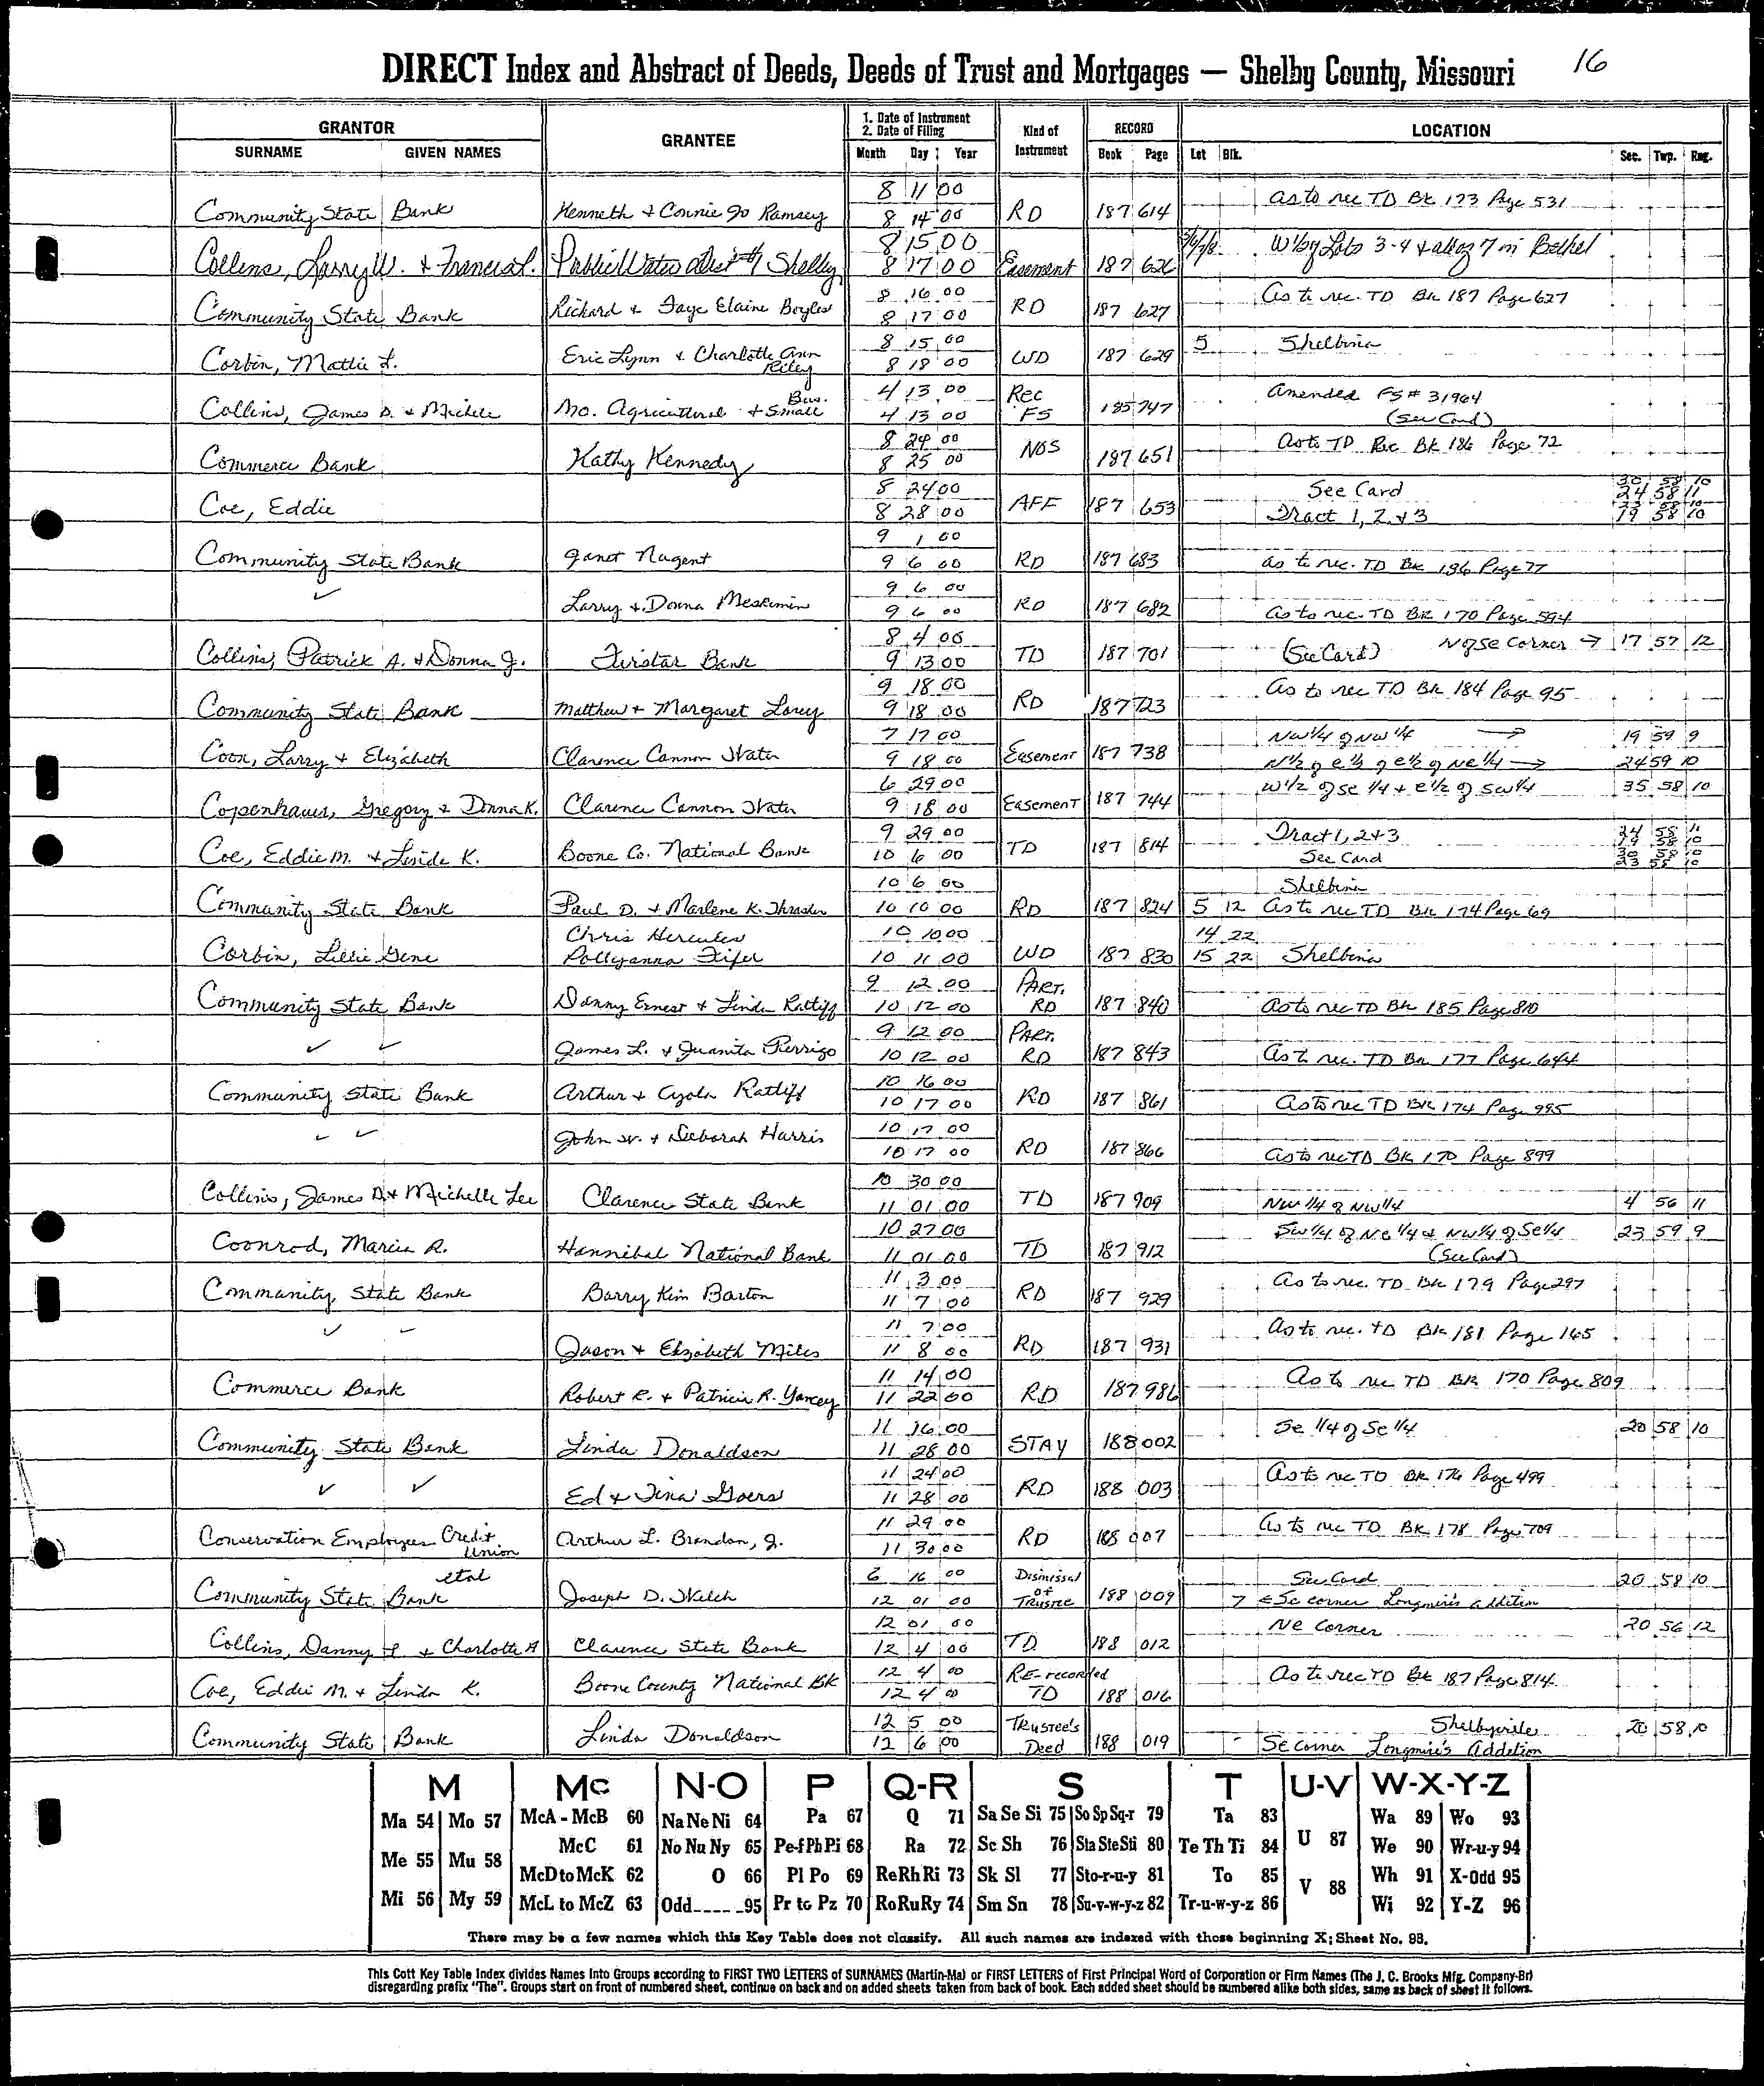 DIRECT Index and Abstract of Deeds, Deeds of Trust and Mortgages — Shelby County, Missouri 16
GRANTOR GRANTEE 1. Date of Instrument 2. Date of Filing Kind of Instrument RECORD LOCATION
SURNAME GIVEN NAMES Month Day Year Book Page Lot Blk. Sec. Twp. Rng.
8 11 00 As to rec TD Bk 173 Page 531
Community State Bank Kenneth & Connie Jo Ramsey 8 14 00 RD 187 614
8 15 00 Lots 3-4 & all of 7 in Bethel
Collins, Larry W. & Frances L. Public Water Dist #1 Shelby 8 17 00 Easement 187 626
8 16 00 As to rec. TD Bk 187 Page 627
Community State Bank Richard & Faye Elaine Boyles 8 17 00 RD 187 627
8 15 00 5 Shelbina
Corbin, Mattie L. Eric Lynn & Charlotte Ann Riley 8 18 00 WD 187 629
4 13 00 Rec Amended FS# 31964
Collins, James D. & Michele Mo. Agricultural & Small Bus. 4 13 00 FS 185 747 (See Card)
8 24 00 As to TD Rec Bk 186 Page 72
Commerce Bank Kathy Kennedy 8 25 00 NOS 187 651
8 24 00 See Card 30 58 10 24 58 11
Coe, Eddie 8 28 00 AFF 187 653 Tract 1, 2 & 3 19 58 10
9 1 00
Community State Bank Janet Nugent 9 6 00 RD 187 683 As to rec. TD Bk 186 Page 77
9 6 00
✓ Larry & Donna Meskimin 9 6 00 RD 187 682 As to rec. TD BK 170 Page 594
8 4 00 N of SE Corner → 17 57 12
Collins, Patrick A. & Donna J. Firstar Bank 9 13 00 TD 187 701 (See Card)
9 18 00 As to rec TD Bk 184 Page 95
Community State Bank Matthew & Margaret Lovey 9 18 00 RD 187 723
7 17 00 NW 1/4 of NW 1/4 → 19 59 9
Coon, Larry & Elizabeth Clarence Cannon Water 9 18 00 Easement 187 738 N 1/2 of E 1/2 of E 1/2 of NE 1/4 → 24 59 10
6 29 00 W 1/2 of SE 1/4 & E 1/2 of SW 1/4 35 58 10
Copenhaver, Gregory & Donna K. Clarence Cannon Water 9 18 00 Easement 187 744
9 29 00 Tract 1, 2 & 3 24 58 11 19 58 10
Coe, Eddie M. & Linda K. Boone Co. National Bank 10 6 00 TD 187 814 See Card 30 58 10 23 58 10
10 6 00 Shelbina
Community State Bank Paul D. & Marlene K. Thrasher 10 10 00 RD 187 824 5 12 As to rec TD Bk 174 Page 69
Chris Hercules 10 10 00 14 22
Corbin, Lillie Gene Pollyanna Fifer 10 11 00 WD 187 830 15 22 Shelbina
9 12 00 PART.
Community State Bank Danny Ernest & Linda Ratliff 10 12 00 RD 187 840 As to rec TD Bk 185 Page 810
9 12 00 PART.
✓ ✓ James L. & Juanita Perrigo 10 12 00 RD 187 843 As to rec. TD Bk 177 Page 644
10 16 00
Community State Bank Arthur & Cyola Ratliff 10 17 00 RD 187 861 As to rec TD BK 174 Page 995
10 17 00
✓ ✓ John W. & Deborah Harris 10 17 00 RD 187 866 As to rec TD Bk 170 Page 899
10 30 00
Collins, James D. & Michelle Lee Clarence State Bank 11 01 00 TD 187 909 NW 1/4 of NW 1/4 4 56 11
10 27 00 SW 1/4 of NE 1/4 & NW 1/4 of SE 1/4 23 59 9
Coonrod, Marcia R. Hannibal National Bank 11 01 00 TD 187 912 (See Card)
11 3 00 As to rec. TD Bk 179 Page 297
Community State Bank Barry Kim Barton 11 7 00 RD 187 929
11 7 00 As to rec. TD Bk 181 Page 165
✓ ✓ Jason & Elizabeth Miles 11 8 00 RD 187 931
11 14 00 As to rec TD BK 170 Page 809
Commerce Bank Robert R. & Patricia R. Yancey 11 22 00 RD 187 986
11 16 00 SE 1/4 of SE 1/4 20 58 10
Community State Bank Linda Donaldson 11 28 00 STAY 188 002
11 24 00 As to rec TD BK 176 Page 499
✓ ✓ Ed & Tina Goers 11 28 00 RD 188 003
11 29 00 As to rec TD BK 178 Page 709
Conservation Employees Credit Union Arthur L. Brandon, J. 11 30 00 RD 188 007
etal 6 16 00 Dismissal of See Card 20 58 10
Community State Bank Joseph D. Welch 12 01 00 Trustee 188 009 7 SE corner Longmire's addition
12 01 00 NE Corner 20 56 12
Collins, Danny L & Charlotte A Clarence State Bank 12 4 00 TD 188 012
12 4 00 RE-recorded As to rec TD Bk 187 Page 814
Coe, Eddie M. & Linda K. Boone County National Bk 12 4 00 TD 188 016
12 5 00 Trustee's Shelbyville 20 58 10
Community State Bank Linda Donaldson 12 6 00 Deed 188 019 SE corner Longmire's Addition
M Mc N-O P Q-R S T U-V W-X-Y-Z
Ma 54 Mo 57 McA - McB 60 Na Ne Ni 64 Pa 67 Q 71 Sa Se Si 75 So Sp Sq-r 79 Ta 83 Wa 89 Wo 93
Me 55 Mu 58 McC 61 No Nu Ny 65 Pe-f Ph Pi 68 Ra 72 Sc Sh 76 Sta Ste Sti 80 Te Th Ti 84 U 87 We 90 Wr-u-y 94
McD to McK 62 O 66 Pl Po 69 Re Rh Ri 73 Sk Sl 77 Sto-r-u-y 81 To 85 V 88 Wh 91 X-Odd 95
Mi 56 My 59 McL to McZ 63 Odd 95 Pr to Pz 70 Ro Ru Ry 74 Sm Sn 78 Su-v-w-y-z 82 Tr-u-w-y-z 86 Wi 92 Y-Z 96
There may be a few names which this Key Table does not classify. All such names are indexed with those beginning X; Sheet No. 95.
This Cott Key Table Index divides Names Into Groups according to FIRST TWO LETTERS of SURNAMES (Martin-Ma) or FIRST LETTERS of First Principal Word of Corporation or Firm Names (The J. C. Brooks Mfg. Company-Br)
disregarding prefix "The". Groups start on front of numbered sheet, continue on back and on added sheets taken from back of book. Each added sheet should be numbered alike both sides, same as back of sheet it follows.